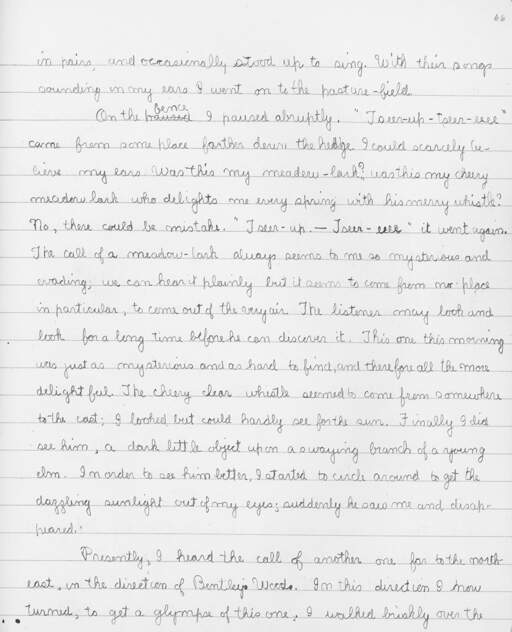 66
in pairs, and occasionally stood up to sing. With their songs
sounding in my ears I went on to the pasture-field.
fence
On the paused I paused abruptly. "Tseer-up-tseer-eee"
came from some place farther down the hedge. I could scarcely be-
lieve my ears. Was this my meadow-lark? was this my cheery
meadow lark who delights me every spring with his merry whistle?
No, there could be mistake. "Tseer-up. — Tseer-eee" it went again.
The call of a meadow-lark always seems to me so mysterious and
evading; we can hear it plainly but it seems to come from no place
in particular, to come out of the very air. The listener may look and
look for a long time before he can discover it. This one this morning
was just as mysterious and as hard to find, and therefore all the more
delightful. The cheery clear whistle seemed to come from somewhere
to the east; I looked but could hardly see for the sun. Finally I did
see him, a dark little object upon a swaying branch of a young
elm. In order to see him better, I started to circle around to get the
dazzling sunlight out of my eyes; suddenly he saw me and disap-
peared.
Presently, I heard the call of another one far to the north-
east, in the direction of Bentley's Woods. In this direction I now
turned, to get a glympse of this one. I walked briskly over the